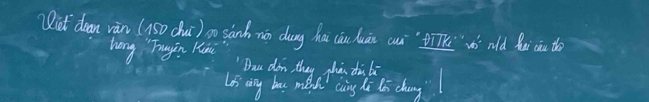 Viết đoạn văn (150 chữ) so sánh nội dung hai câu luận của "ĐTTKí" với n/d hai câu thơ
trong "Truyện Kiều"
"Đau đớn thay phận đàn bà
Lời rằng bạc mệnh cũng là lời chung" !